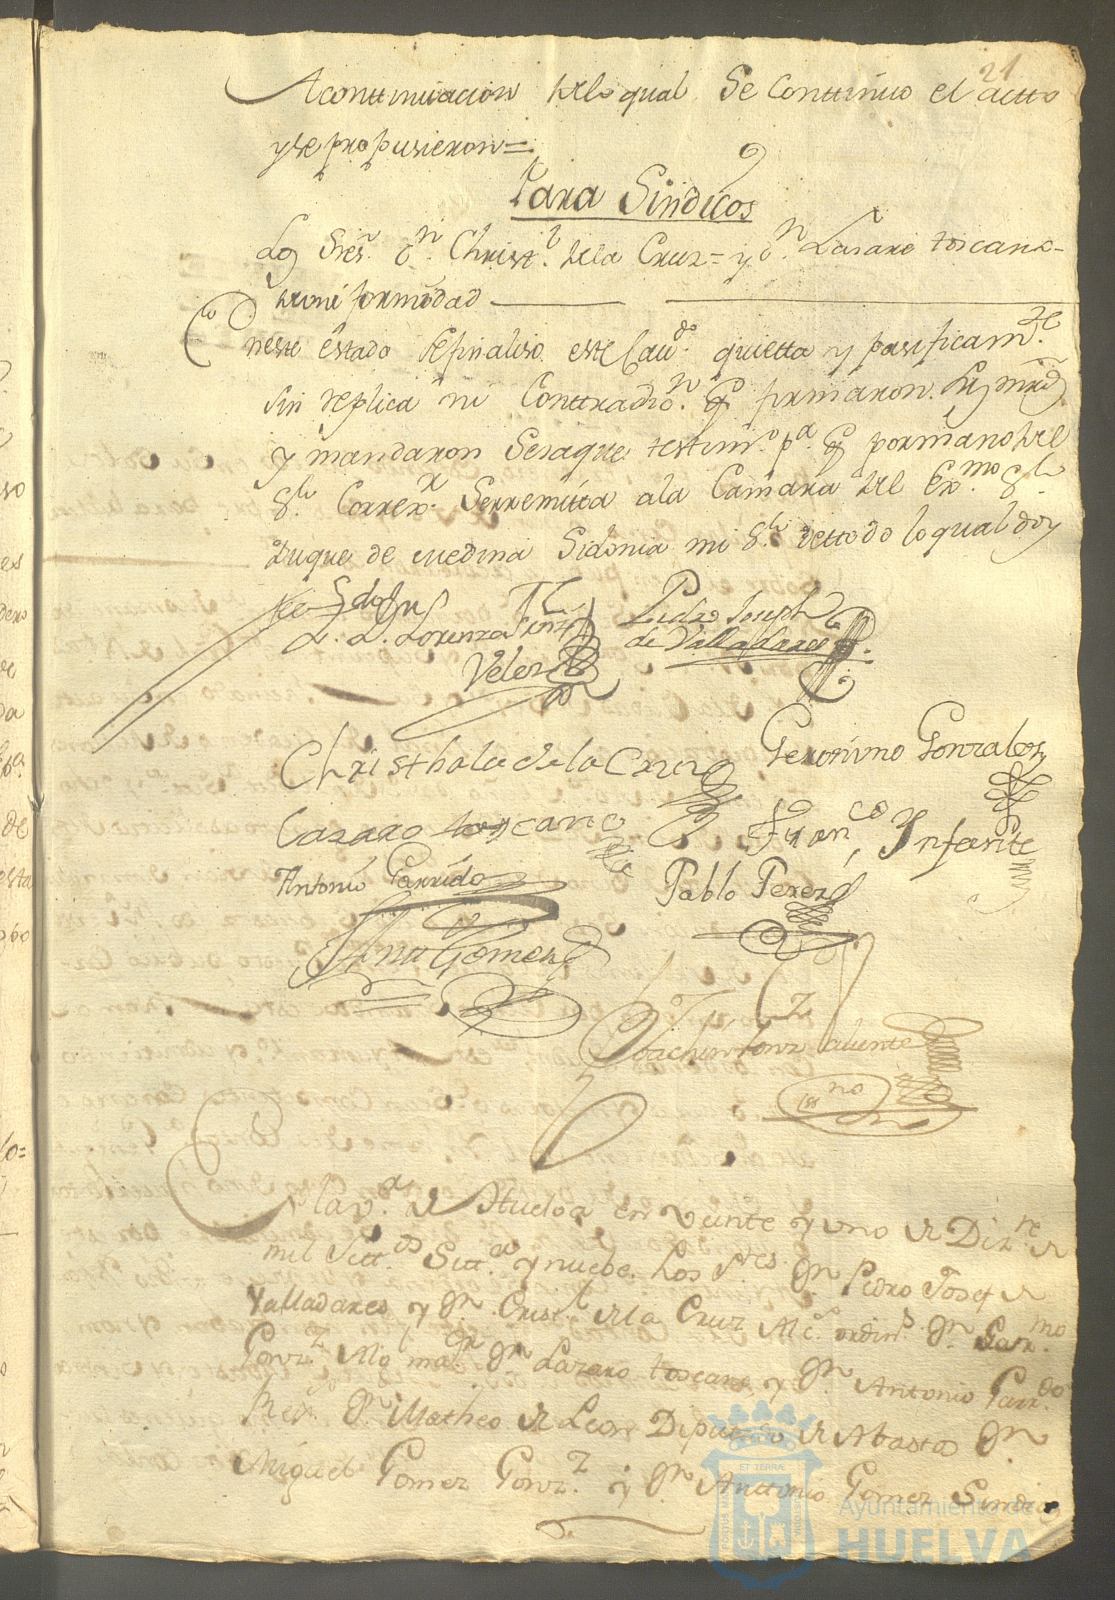 21
Acontinuacion delo qual Se Continuo el actto
y se propusieron=
Para Sindicos
Los Sres. Dn. Christl. dela Cruz= y Dn. Lasaro toscano=
de uniformidad
En este estado se finaliso este Cavdo. quietta y pasificamte.
Sin replica ni Conttradion. y firmaron Sus mrds
y mandaron Se saque testimo. pa. q por mano del
Sr. Correxr. Se rremita ala Camara del Exmo. Sr.
Duque de Medina Sidonia mi Sr. dettodo lo qual doy
fee
Ldo. Lorenzo
Velez
Pedro Joseph
de Valladares
Christhobal de la Cruz
Geronimo Gonzales
Lazaro toscano
Franco. Ynfante
Antonio Garrido
Pablo Perez
Gomez
Joachin Gonz Valiente
Essno
En la va. de Huelva en veinte y uno de Dizre. de
mil Settos. Setta. y nuebe. Los Sres. Dn. Pedro Josef de
Valladares, y Dn. Cristl. de la Cruz Alcs. ordins. Dn. Germo.
Gonzz. Alg. mayr. Dn. Lazaro toscano, y Dn. Antonio Garrdo.
Rexs. Dn. Matheo de Leon Diputado de Abastos Dn.
Miguel Gomez Gonzz. y Dn. Anttonio Gomez Sindicos
Ayuntamiento de
HUELVA